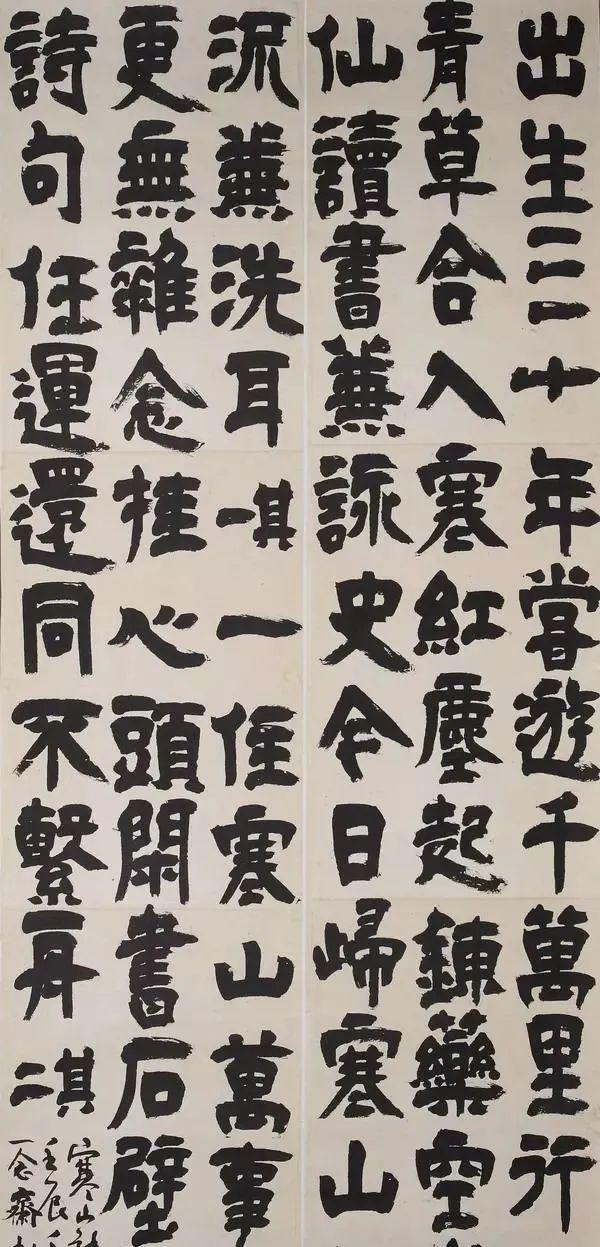 出生三十年嘗遊千萬里行
青草合入塞紅塵起鍊藥空
仙讀書兼詠史今日歸寒山
流兼洗耳其一一住寒山萬事
更無雜念挂心頭閑書石壁
詩句任運還同不繫舟其二
寒山
壬辰
一念齋